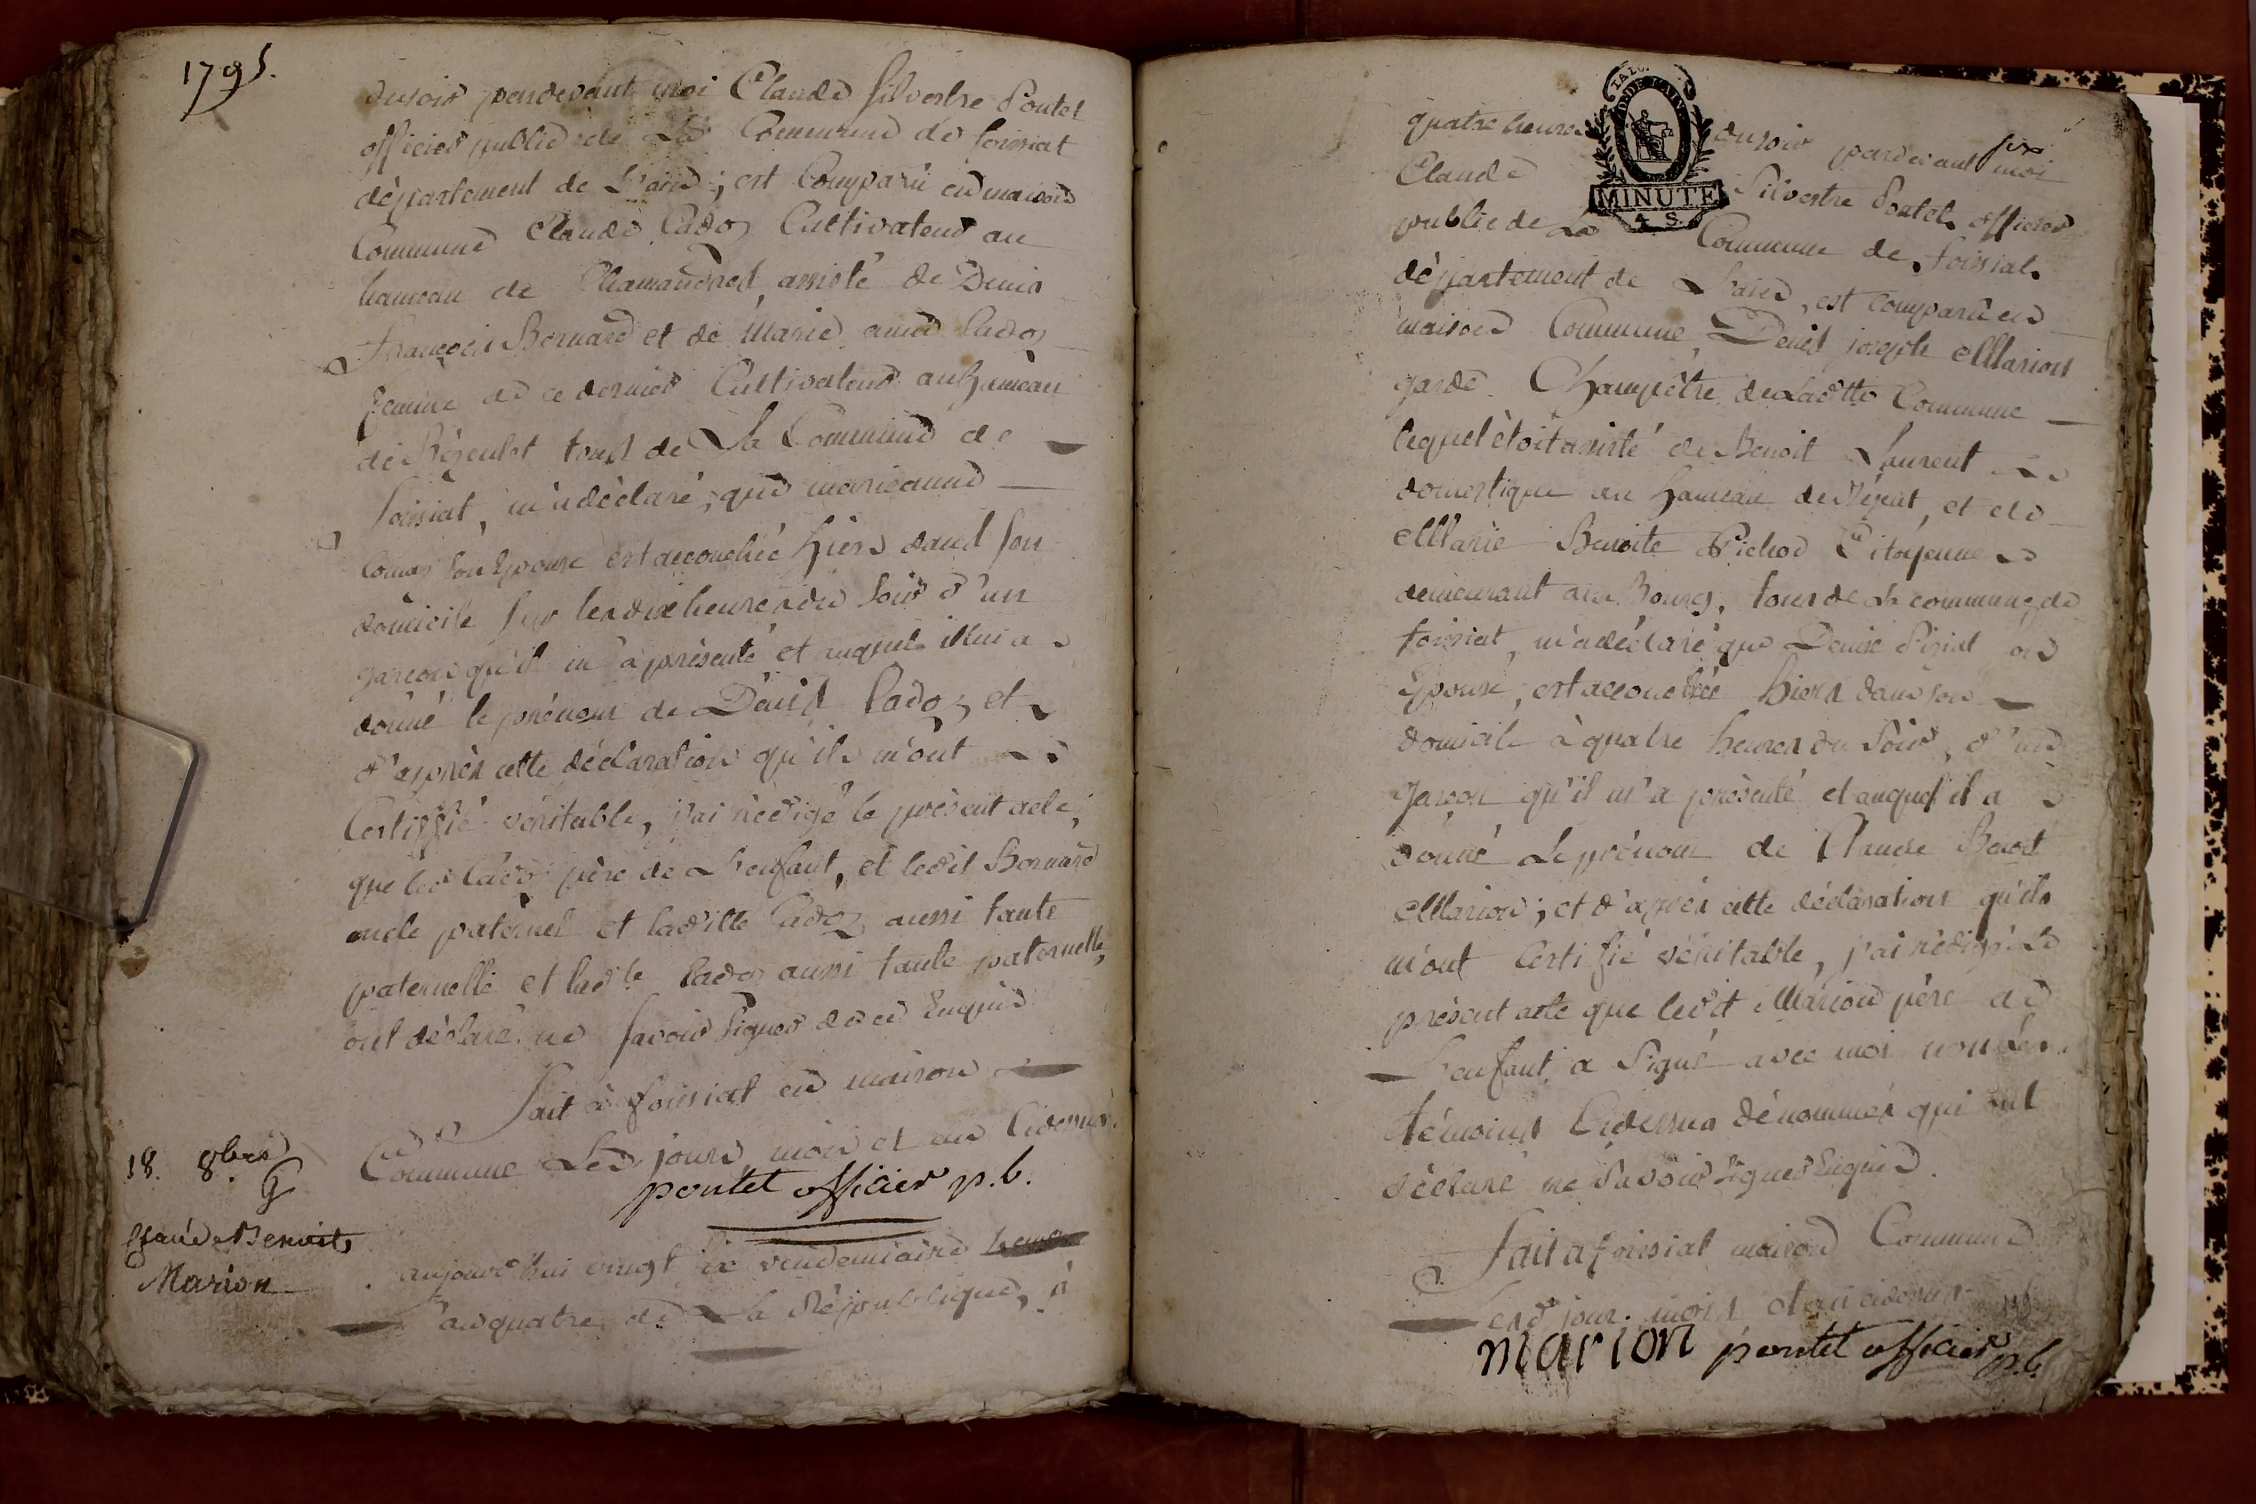 1795.
dusoir pardevant moi Claude Silvestre Pontet
officier public de La Commune de foissiat
département de L'ain, est Comparu en maison
Commune Claude Cadoz Cultivateur au
hameau de Chamandret, assisté de Denis
François Bernard et de Marie anne Cadoz
femme de ce dernier Cultivateur au hameau
de tous de La Commune de
foissiat, m'a déclaré, que marieanne
son Epouse est accouchée hiers dans son
domicile sur les dix heures du soir d'un
garçon qu'il m'a présenté et auquel il lui a
donné le prénom de Denis Cadoz, et
d'après cette déclaration qu'ils m'ont
Certiffié véritable, j'ai rédigé le présent acte,
que led Cadoz père de L'enfant, et ledit Bernard
oncle paternel et laditte Cadoz aussi tante
paternelle et ladte Cadoz aussi tante paternelle,
ont déclaré ne savoir signer de ce Enquis
fait à foissiat en maison
Commune Led. jours mois et an Cidessus.
pontet officier p.b.
18. 8bre
G
Claude Benoits
Marion
aujourd'hui vingt six vendemiaire
L'an quatre de La République, à
quatre heures dusoir pardevant moi
Claude Silvestre Pontet officier
public de La Commune de foissiat
MINUTE
4 S.
département de L'ain, est comparu en
maison Commune Denis joseph Marion
garde Champêtre de Laditte Commune
lequel étoit assisté de Benoit Laurent
domestique au hameau de et de
Marie Benoite Citoyenne
demeurant au Bourg, tous de La commune de
foissiat, m'a déclaré que Denise son
Epouse, est accouchée hiers dans son
domicile à quatre heures du soir, d'un
garçon qu'il m'a présenté et auquel il a
donné Le prénom de Claude Benoit
Marion; et d'après cette déclaration qu'ils
m'ont Certifié véritable, j'ai rédigé Le
présent acte que ledit Marion père de
L'enfant a signé avec moi non les
témoins Cidessus dénommés qui ont
déclaré ne savoir signer Enquis.
fait a foissiat maison Commune
Led jour mois et an cidessus
marion pontet officier p.b.